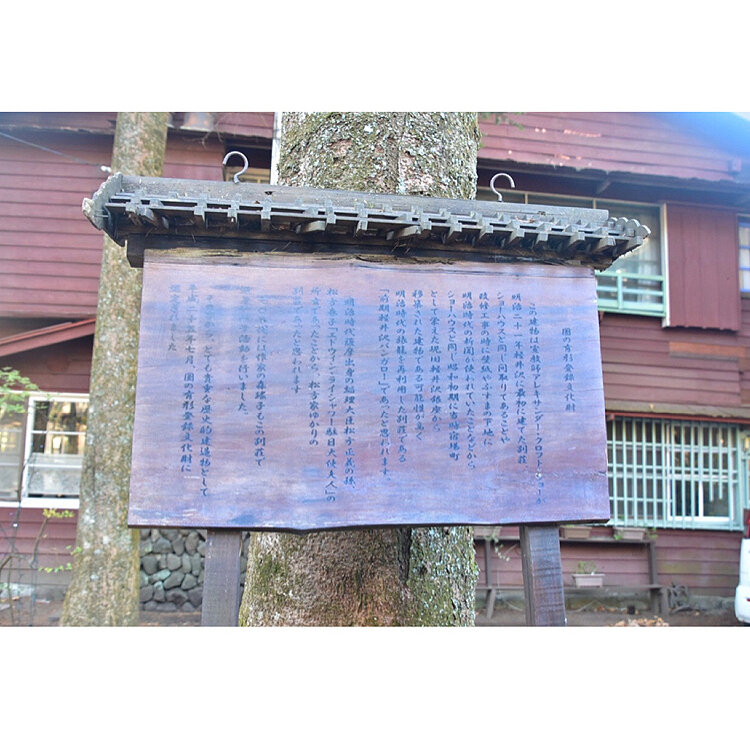 国の有形登録文化財
この建物は宣教師アレキサンダー・クロフト・ショーが
明治二十一年軽井沢に最初に建てた別荘
ショーハウスと同じ間取りであることや
改修工事の時に壁紙やふすまの下地に
明治時代の新聞が使われていたことなどから、
ショーハウスと同じ昭和初期に当時宿場町
として栄えた現旧軽井沢銀座から
移築された建物である可能性が高く
明治時代の旅籠を再利用した別荘である
「前期軽井沢バンガロー」であったと思われます
明治時代薩摩出身の総理大臣松方正義の孫、
松方春子「エドウィン・ライシャワー駐日大使夫人」の
であったことから、松方家ゆかりの
別荘であったと思われます
には作家の森瑤子もこの別荘で
活動を行いました。
とても貴重な歴史的建造物として
平成二十五年七月 国の有形登録文化財に
選定されました